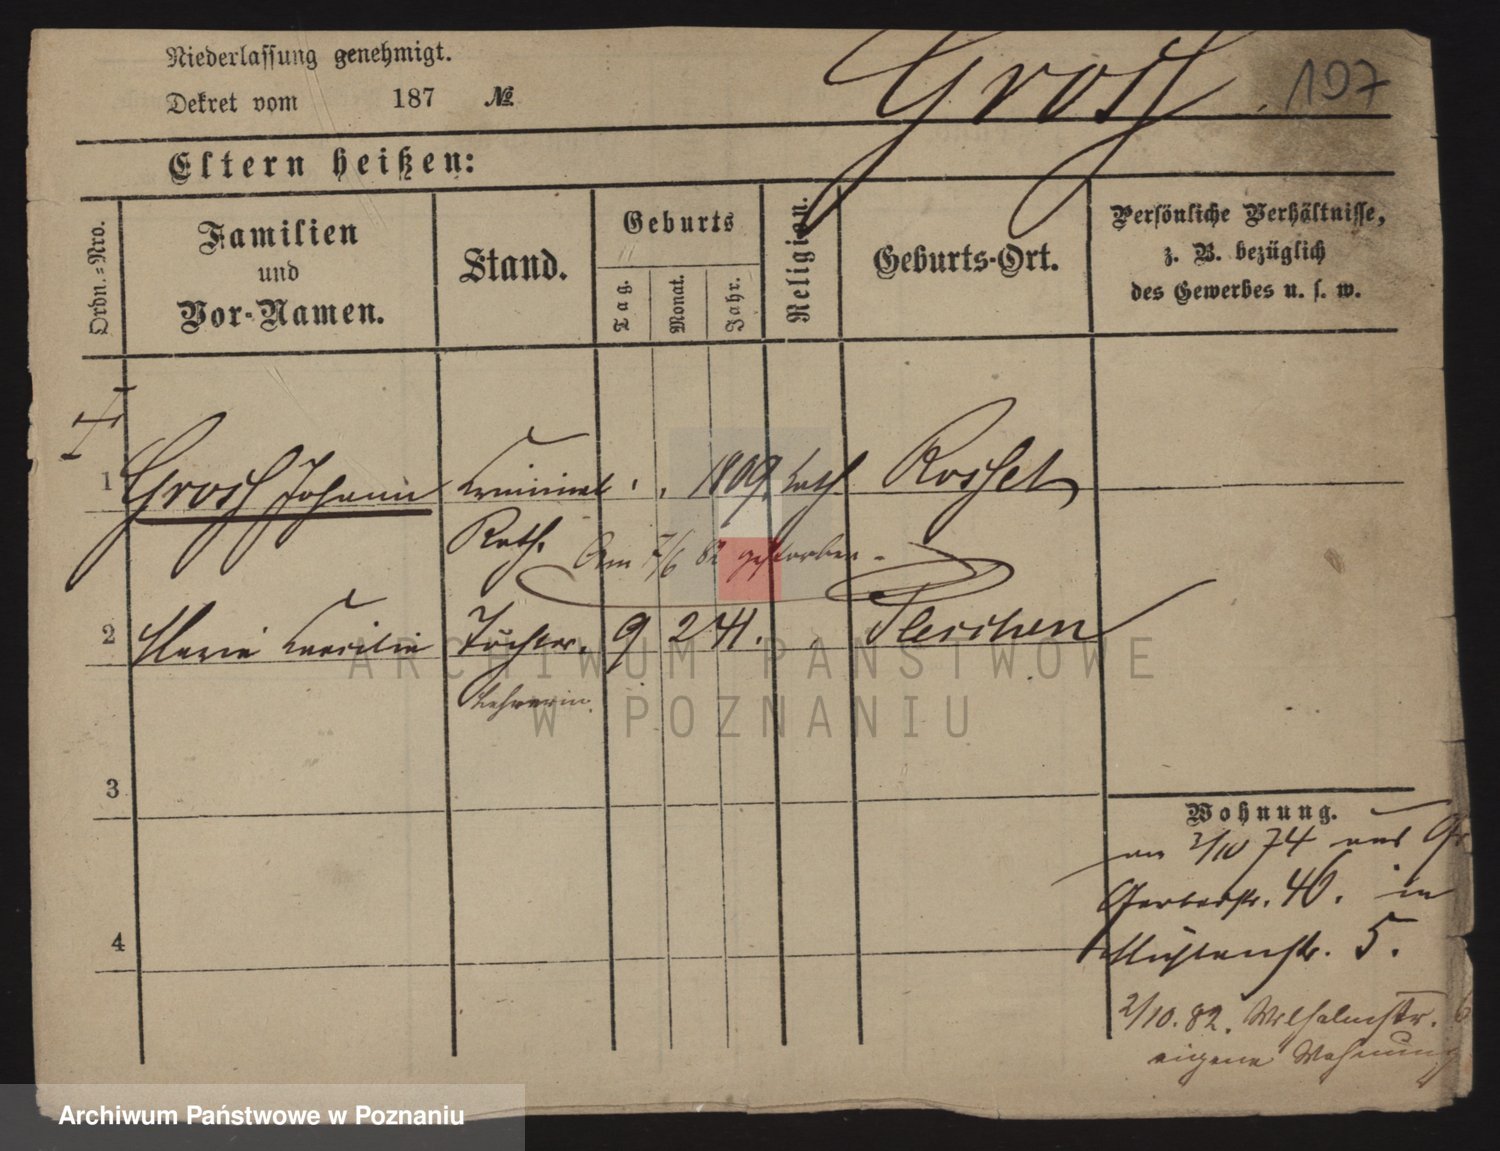 Niederlassung genehmigt.
Dekret vom 187 №
Grosz
197
Eltern heißen:
Ordn.-Nro.
Familien
und
Vor-Namen.
Stand.
Geburts
Tag.
Monat.
Jahr.
Religion.
Geburts-Ort.
Persönliche Verhältnisse,
z. B. bezüglich
des Gewerbes u. s. w.
1 Grosz Johann Criminal 1809. kath.
Rath.
Am 7/6 82 gestorben
2 Marie Caecilie Tochter. 9 2 41. Pleschen
Lehrerin.
3
4
Wohnung.
am 2/10 74 aus Gr
Gerberstr. 46. in
Mühlenstr. 5.
2/10. 82. Wilhelmstr. 6
eigene Wohnung
ARCHIWUM PAŃSTWOWE
W POZNANIU
Archiwum Państwowe w Poznaniu